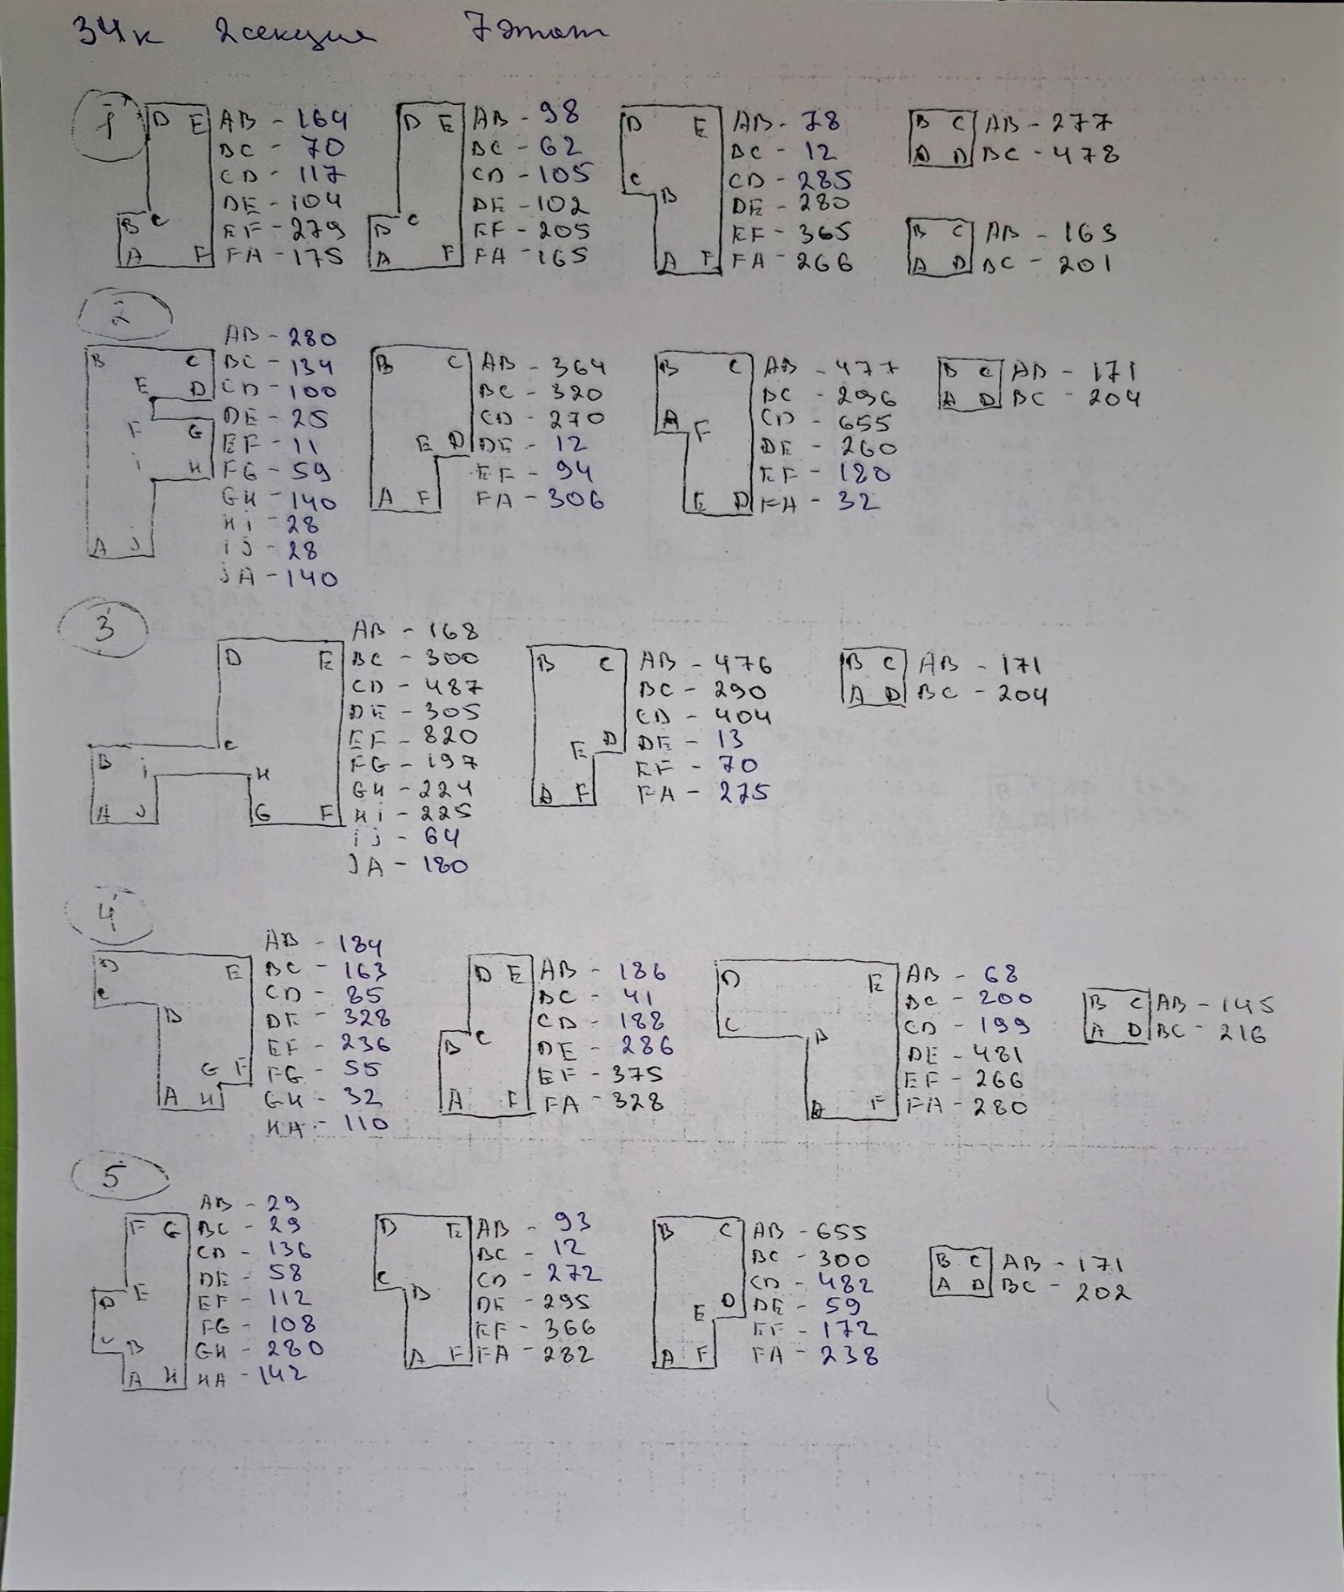 34к 2секция 7этаж
1
D E
B C
A F
AB - 164
BC - 70
CD - 117
DE - 104
EF - 279
FA - 175
D E
B C
A F
AB - 98
BC - 62
CD - 105
DE - 102
EF - 205
FA - 165
D E
C B
A F
AB - 78
BC - 12
CD - 285
DE - 280
EF - 365
FA - 266
B C
A D
AB - 277
BC - 478
B C
A D
AB - 163
BC - 201
2
B C
E D
F G
i H
A j
AB - 280
BC - 134
CD - 100
DE - 25
EF - 11
FG - 59
GH - 140
Hi - 28
ij - 28
jA - 140
B C
E D
A F
AB - 364
BC - 320
CD - 270
DE - 12
EF - 94
FA - 306
B C
A F
E D
AB - 477
BC - 296
CD - 655
DE - 260
EF - 180
FA - 32
B C
A D
AB - 171
BC - 204
3
D E
C
B i H
A J G F
AB - 168
BC - 300
CD - 487
DE - 305
EF - 820
FG - 197
GH - 224
Hi - 225
ij - 64
JA - 180
B C
E D
A F
AB - 476
BC - 290
CD - 404
DE - 13
EF - 70
FA - 275
B C
A D
AB - 171
BC - 204
4
D E
C B
G F
A H
AB - 184
BC - 163
CD - 85
DE - 328
EF - 236
FG - 55
GH - 32
HA - 110
D E
B C
A F
AB - 186
BC - 41
CD - 188
DE - 286
EF - 375
FA - 328
D E
C B
A F
AB - 68
BC - 200
CD - 199
DE - 481
EF - 266
FA - 280
B C
A D
AB - 145
BC - 216
5
F G
D E
C B
A H
AB - 29
BC - 29
CD - 136
DE - 58
EF - 112
FG - 108
GH - 280
HA - 142
D E
C B
A F
AB - 93
BC - 12
CD - 272
DE - 295
EF - 366
FA - 282
B C
E D
A F
AB - 655
BC - 300
CD - 482
DE - 59
EF - 172
FA - 238
B C
A D
AB - 171
BC - 202